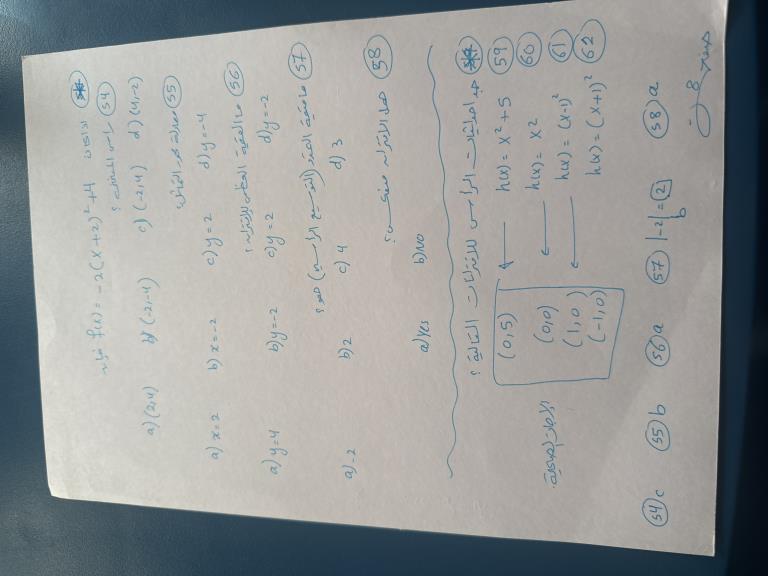 * اذا كان f(x) = -2(x+2)²+4 فإن
54 رأس المنحنى ؟
a) (2,4) b) (-2,-4) c) (-2,4) d) (4,-2)
55 معادلة محور التماثل
a) x=2 b) x=-2 c) y=2 d) y=-4
56 ما القيمة العظمى للاقتران ؟
a) y=4 b) y=-2 c) y=2 d) y=-2
57 ما قيمة التمدد (التوسع الرأسي) هو ؟
a) -2 b) 2 c) 4 d) 3
58 هل الاقتران منعكس ؟
a) Yes b) NO
* ما احداثيات الرأس للاقترانات التالية ؟
59 h(x) = x²+5 ← (0,5)
60 h(x) = x² ← (0,0)
61 h(x) = (x-1)² ← (1,0)
62 h(x) = (x+1)² (-1,0)
الاجابات الصحيحة
54 c 55 b 56 a 57 |-2| = 2 b 58) a
8